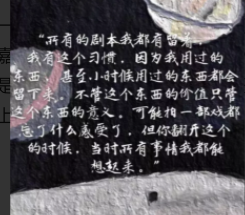 “所有的剧本我都有留着，
我有这个习惯，因为我用过的
东西，甚至小时候用过的东西都会
留下来，不管这个东西的价值只管
这个东西的意义。可能拍一部戏都
忘了什么感受了，但你翻开这个
的时候，当时所有事情我都能
想起来。”